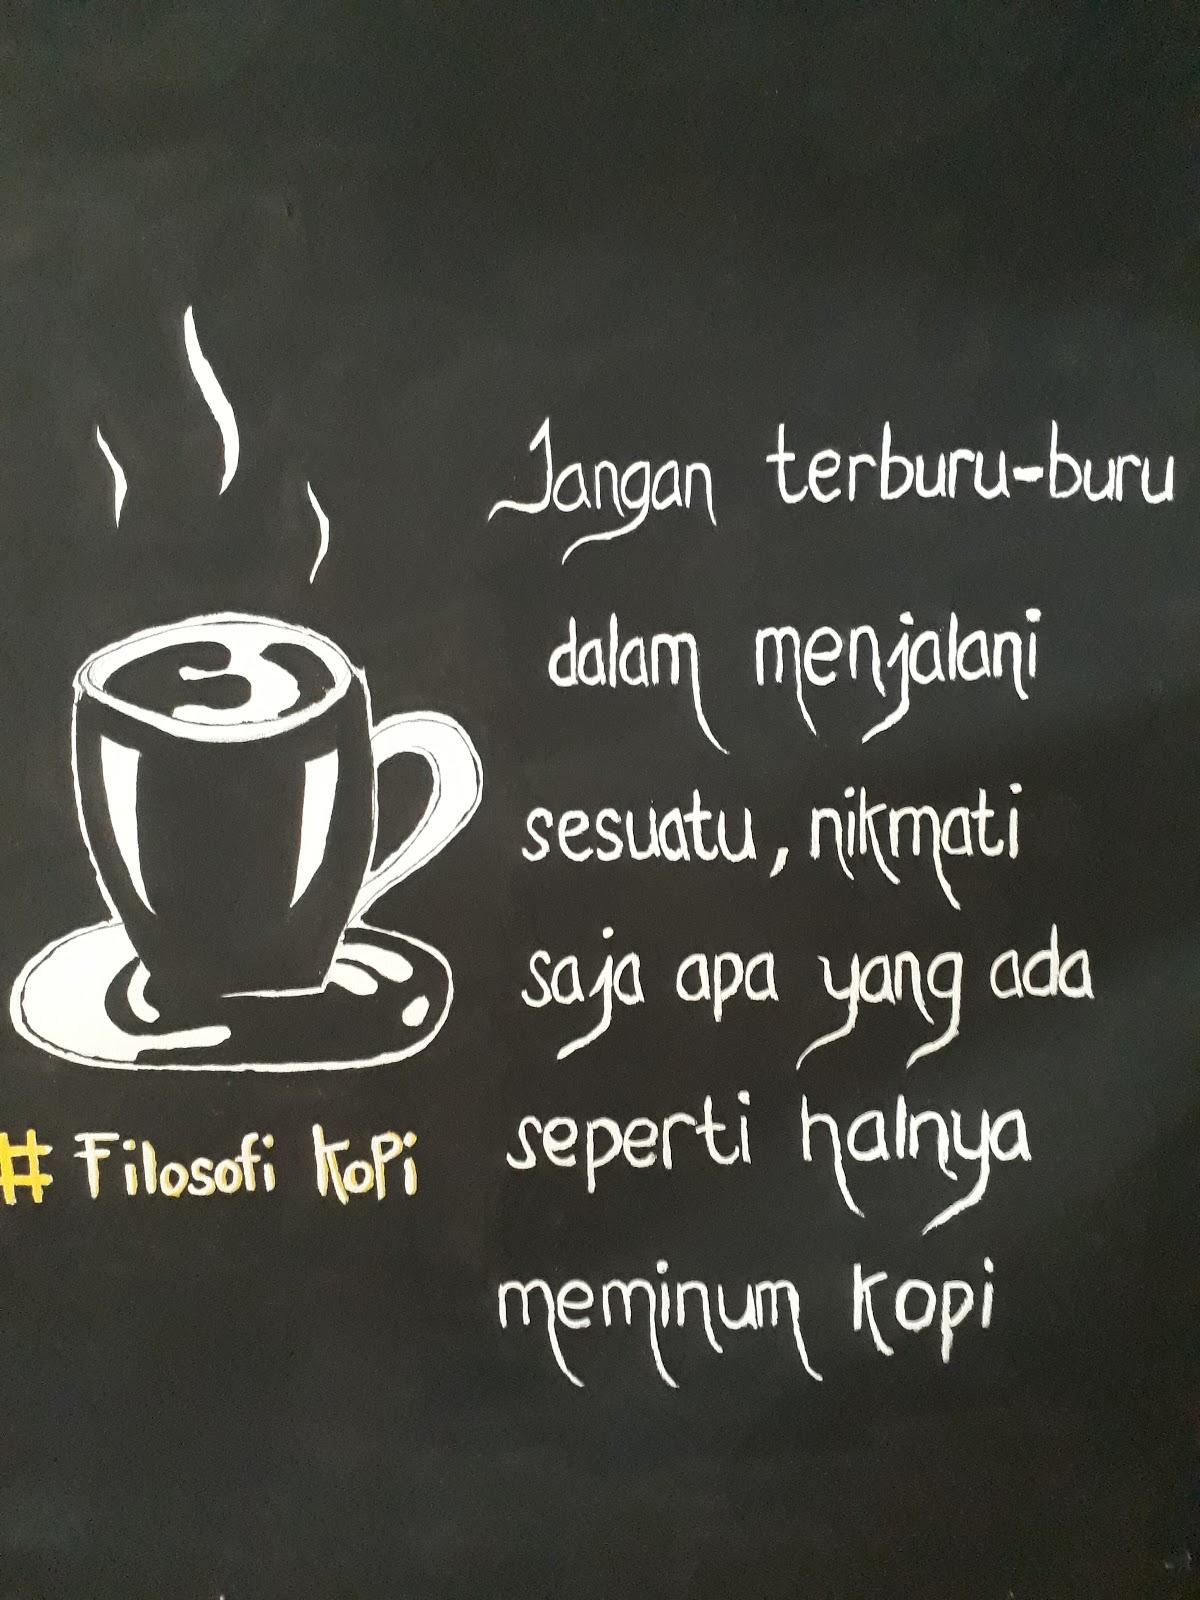 Jangan terburu-buru
dalam menjalani
sesuatu, nikmati
saja apa yang ada
seperti halnya
meminum kopi
# Filosofi Kopi